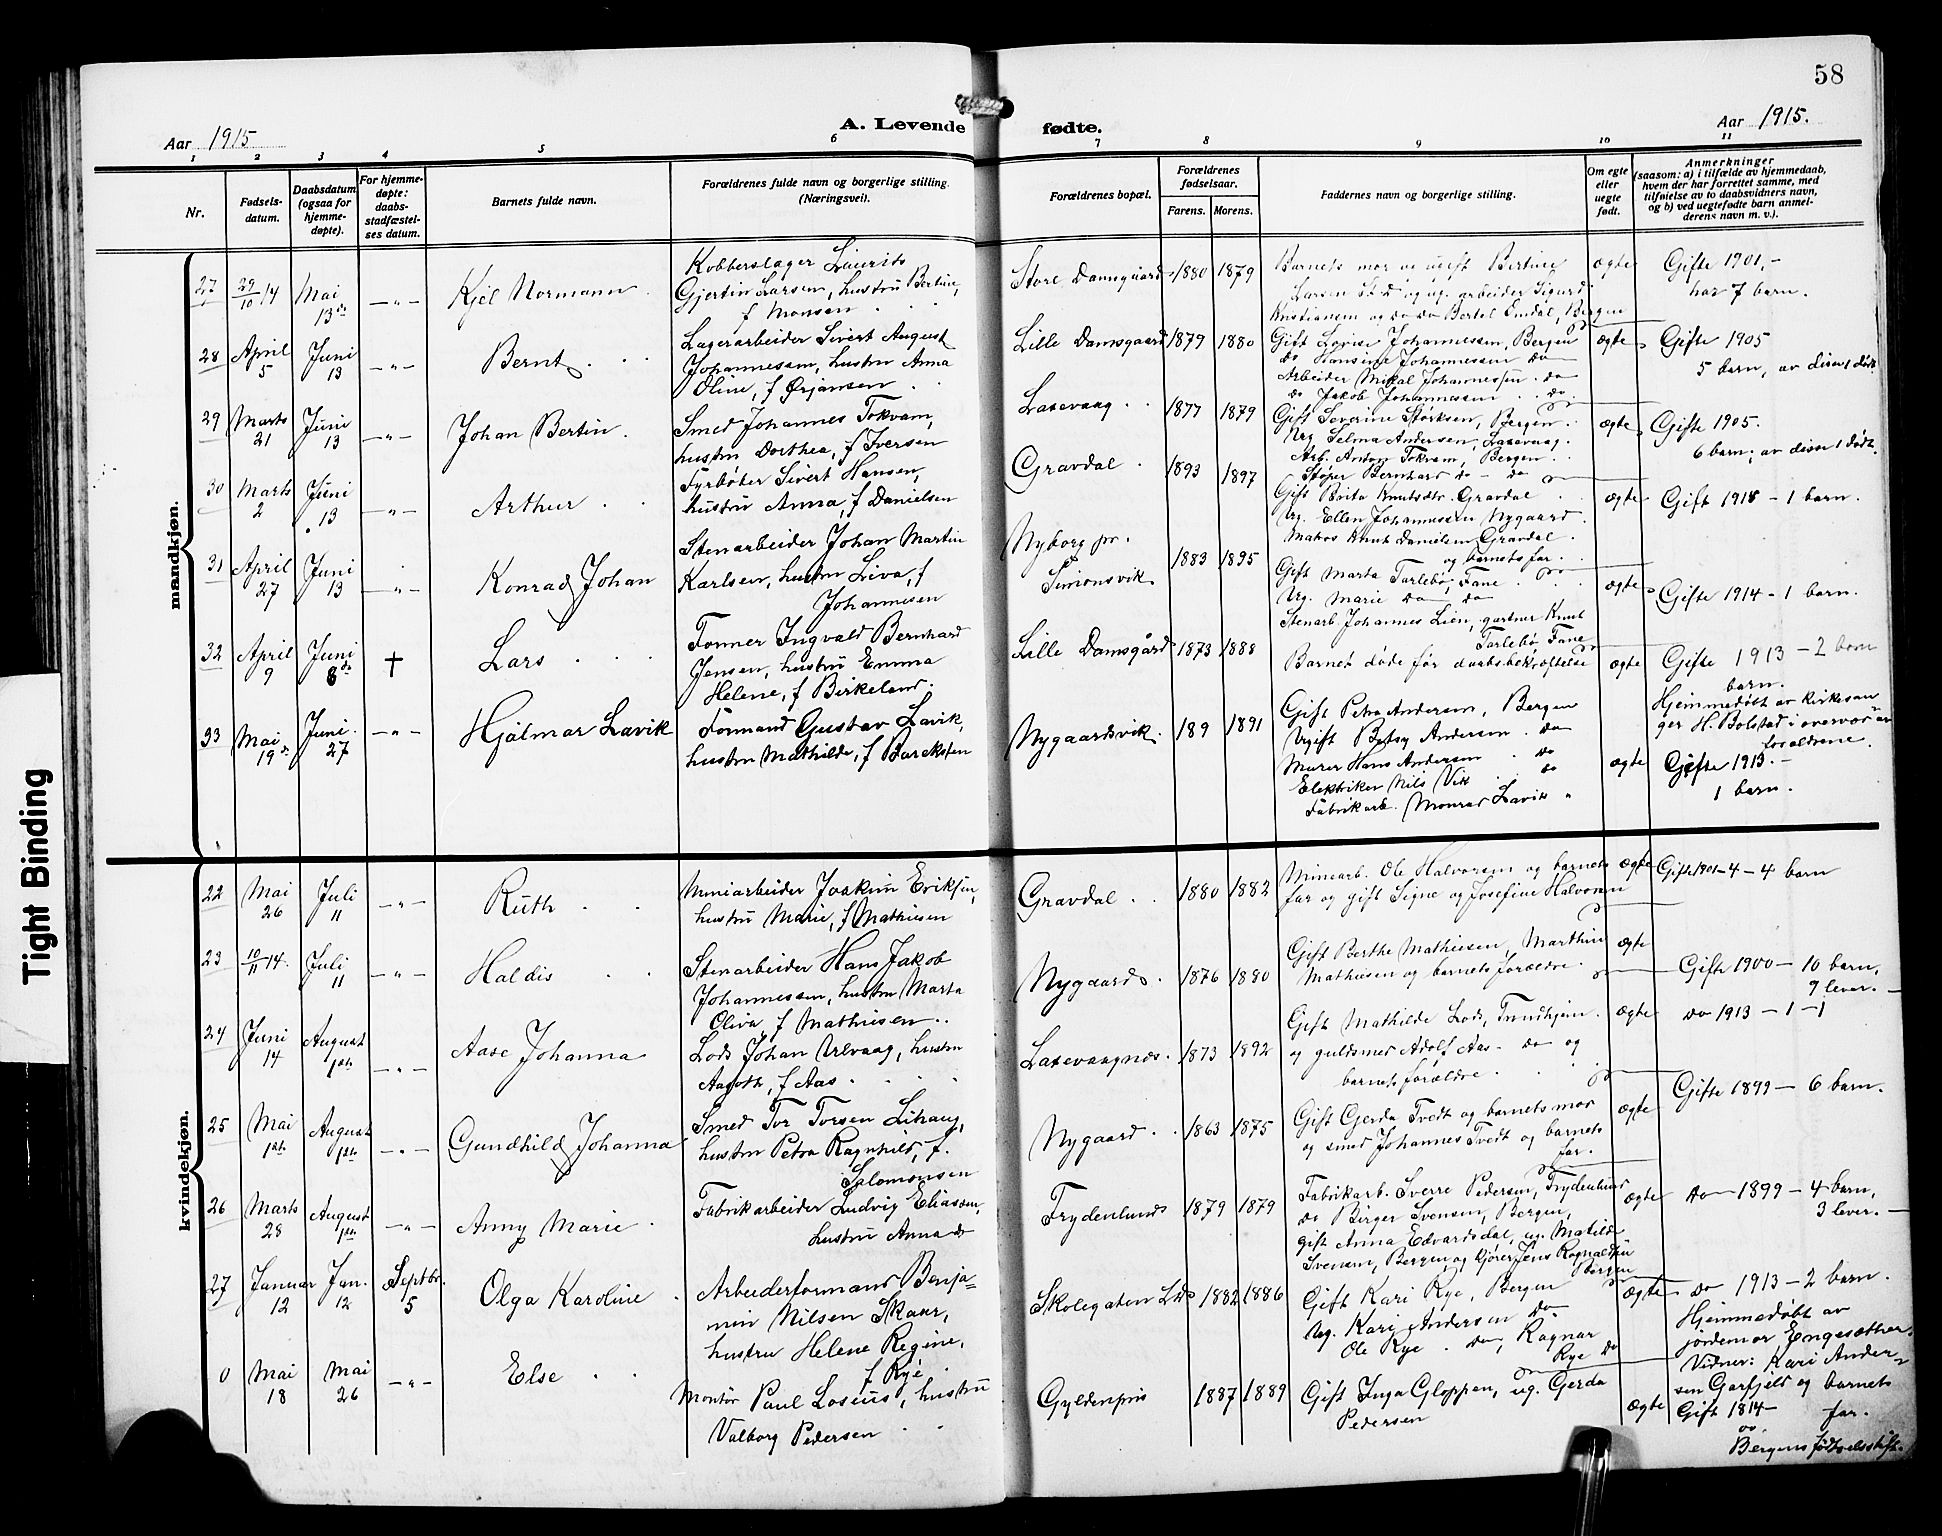 58
Aar 1915
A. Levende fødte.
Aar 1915.
1 2 3 4 5 6 7 8 9 10 11
Nr.
Fødsels-
datum.
Daabsdatum
(ogsaa for
hjemme-
døpte).
For hjemme-
døpte:
daabs-
stadfæstel-
ses datum.
Barnets fulde navn.
Forældrenes fulde navn og borgerlige stilling.
(Næringsvei).
Forældrenes bopæl.
Forældrenes
fødselsaar.
Farens. Morens.
Faddernes navn og borgerlige stilling.
Om egte
eller
uegte
født.
Anmerkninger
(saasom: a) i tilfælde av hjemmedaab,
hvem der har forrettet samme, med
tilføielse av to daabsvidners navn,
og b) ved uegtefødte barn anmel-
derens navn m. v.).
mandkjøn.
27 29/10 14 Mai 13de Kjel Normann
Kobberslager Laurits
Gjertin Larsen, hustru Bertine,
f Monsen
Store Damsgaard 1880 1879
Barnets mor og ugift Bertine
Larsen St D og ug. arbeider Sigurd
Kristiansen og do do Bertel Emdal, Bergen
ægte
Gifte 1901,-
har 7 barn.
28 April 5 Juni 13 Bernt
Lagerarbeider Sivert August
Johannessen, hustru Anna
Oline, f Ørjansen
Lille Damsgaard 1879 1880
Gift Lovise Johannessen, Bergen
do Hansine Johannessen do
Arbeider Mikal Johannessen do
do Jakob Johannessen do
ægte
Gifte 1905
5 barn, av disse 1 død.
29 Marts 21 Juni 13 Johan Bertin
Smed Johannes Tokvam,
hustru Dorthea, f Iversen
Laxevaag 1877 1879
Gift Severine Størksen, Bergen
Ug Selma Andersen, Laxevaag.
Arb. Anton Tokvam, Bergen
Støper Bernhard do - do
ægte
Gifte 1905.
6 barn; av disse 1 død.
30 Marts 2 Juni 13 Arthur
Fyrbøter Sivert Hansen,
hustru Anna, f Danielsen
Gravdal 1893 1897
Gift Brita Knutsdtr. Gravdal
Ug. Ellen Johannessen Nygaard.
Matros Knut Danielsen Gravdal.
og barnets far.
ægte
Gift 1915 - 1 barn.
31 April 27 Juni 13 Konrad Johan
Stenarbeider Johan Martin
Karlsen, hustru Liva, f
Johannesen
Nyborg pr.
Simonsvik 1883 1895
Gift Marta Tarlebø, Fane
Ug. Marie do do
Stenarb. Johannes Lien, gartner Knut
Tarlebø, Fane
ægte
Gifte 1914 - 1 barn.
32 April 9 Juni 8de † Lars
Former Ingvald Bernhard
Jensen, hustru Emma
Helene, f Birkeland.
Lille Damsgård 1873 1888
Barnet døde før daabsbekræftelse
ægte
Gifte 1913 - 2 barn
barn.
Hjemmedøbt av kirkesan
ger H. Bolstad i overvær av
forældrene.
33 Mai 19de Juni 27 Hjalmar Lavik
Formand Gustav Lavik,
hustru Mathilde, f Barcksten
Nygaardsvik 189 1891
Gift Petra Andersen, Bergen
Ugift Betsy Andersen do
Murer Hans Andersen do
Elektriker Nils Vik do
Fabrikarb. Monrad Lavik "
ægte
Gifte 1913.-
1 barn.
kvindekjøn.
22 Mai 26 Juli 11 Ruth
Minearbeider Joakim Eriksen,
hustru Marie, f Mathiesen
Gravdal 1880 1882
Minearb. Ole Halvorsen og barnets
far og gift Signe og Josefine Halvorsen
ægte
Gift 1901-4-4 barn
23 10/11 14. Juli 11 Haldis
Stenarbeider Hans Jakob
Johannessen, hustru Marta
Oliva, f Mathiesen
Nygaard 1876 1880
Gift Berthe Mathiesen, Marthin
Mathiesen og barnets forældre.
ægte
Gifte 1900 - 10 barn,
9 lever.
24 Juni 14 August 1ste Aase Johanna
Lods Johan Ulvaag, hustru
Aagoth, f Aas
Laxevaagnes. 1873 1892
Gift Mathilde Lods, Trondhjem
og guldsmed Adolf Aas - do og
barnets forældre
ægte
do 1913 - 1 - 1
25 Mai 1ste August 1ste Gundhild Johanna
Smed Tor Torsen Lihaug,
hustru Petra Ragnhild, f.
Salomonsen
Nygaard 1863 1875
Gift Gerda Tvedt og barnets mor
og smed Johannes Tvedt og barnets
far.
ægte
Gifte 1899 - 6 barn.
26 Marts 28 August 1ste Anny Marie
Fabrikarbeider Ludvig Eliassen,
hustru Anna do
Frydenlund 1879 1879
Fabrikarb. Sverre Pedersen, Frydenlund
do Birger Svensen, Bergen,
gift Anna Edvardsdal, ug. Matilde
Svensen, Bergen, og kjører Jens Ragnaldsen
Bergen
ægte
do 1899 - 4 barn,
3 lever.
27 Januar 12 Jan. 12 Septbr. 5 Olga Karoline
Arbeiderformand Benja=
min Nilsen Skaar,
hustru Helene Regine,
f Rye
Skolegaten Ld 1882 1886
Gift Kari Rye, Bergen
Ug. Kari Andersen do
Ole Rye do, Ragnar
Rye do
ægte
do 1913 - 2 barn.
Hjemmedøbt av
jordemor Engesæther.
Vidner: Kari Ander=
sen Garfjeld og barnets
far.
0 Mai 18 Mai 26 Else
Montør Paul Losius, hustru
Valborg Pedersen
Gyldenpris 1887 1889
Gift Inga Gloppen, ug. Gerda
Pedersen
ægte
Gift 1814-
Bergens fødselsstift.
Tight Binding